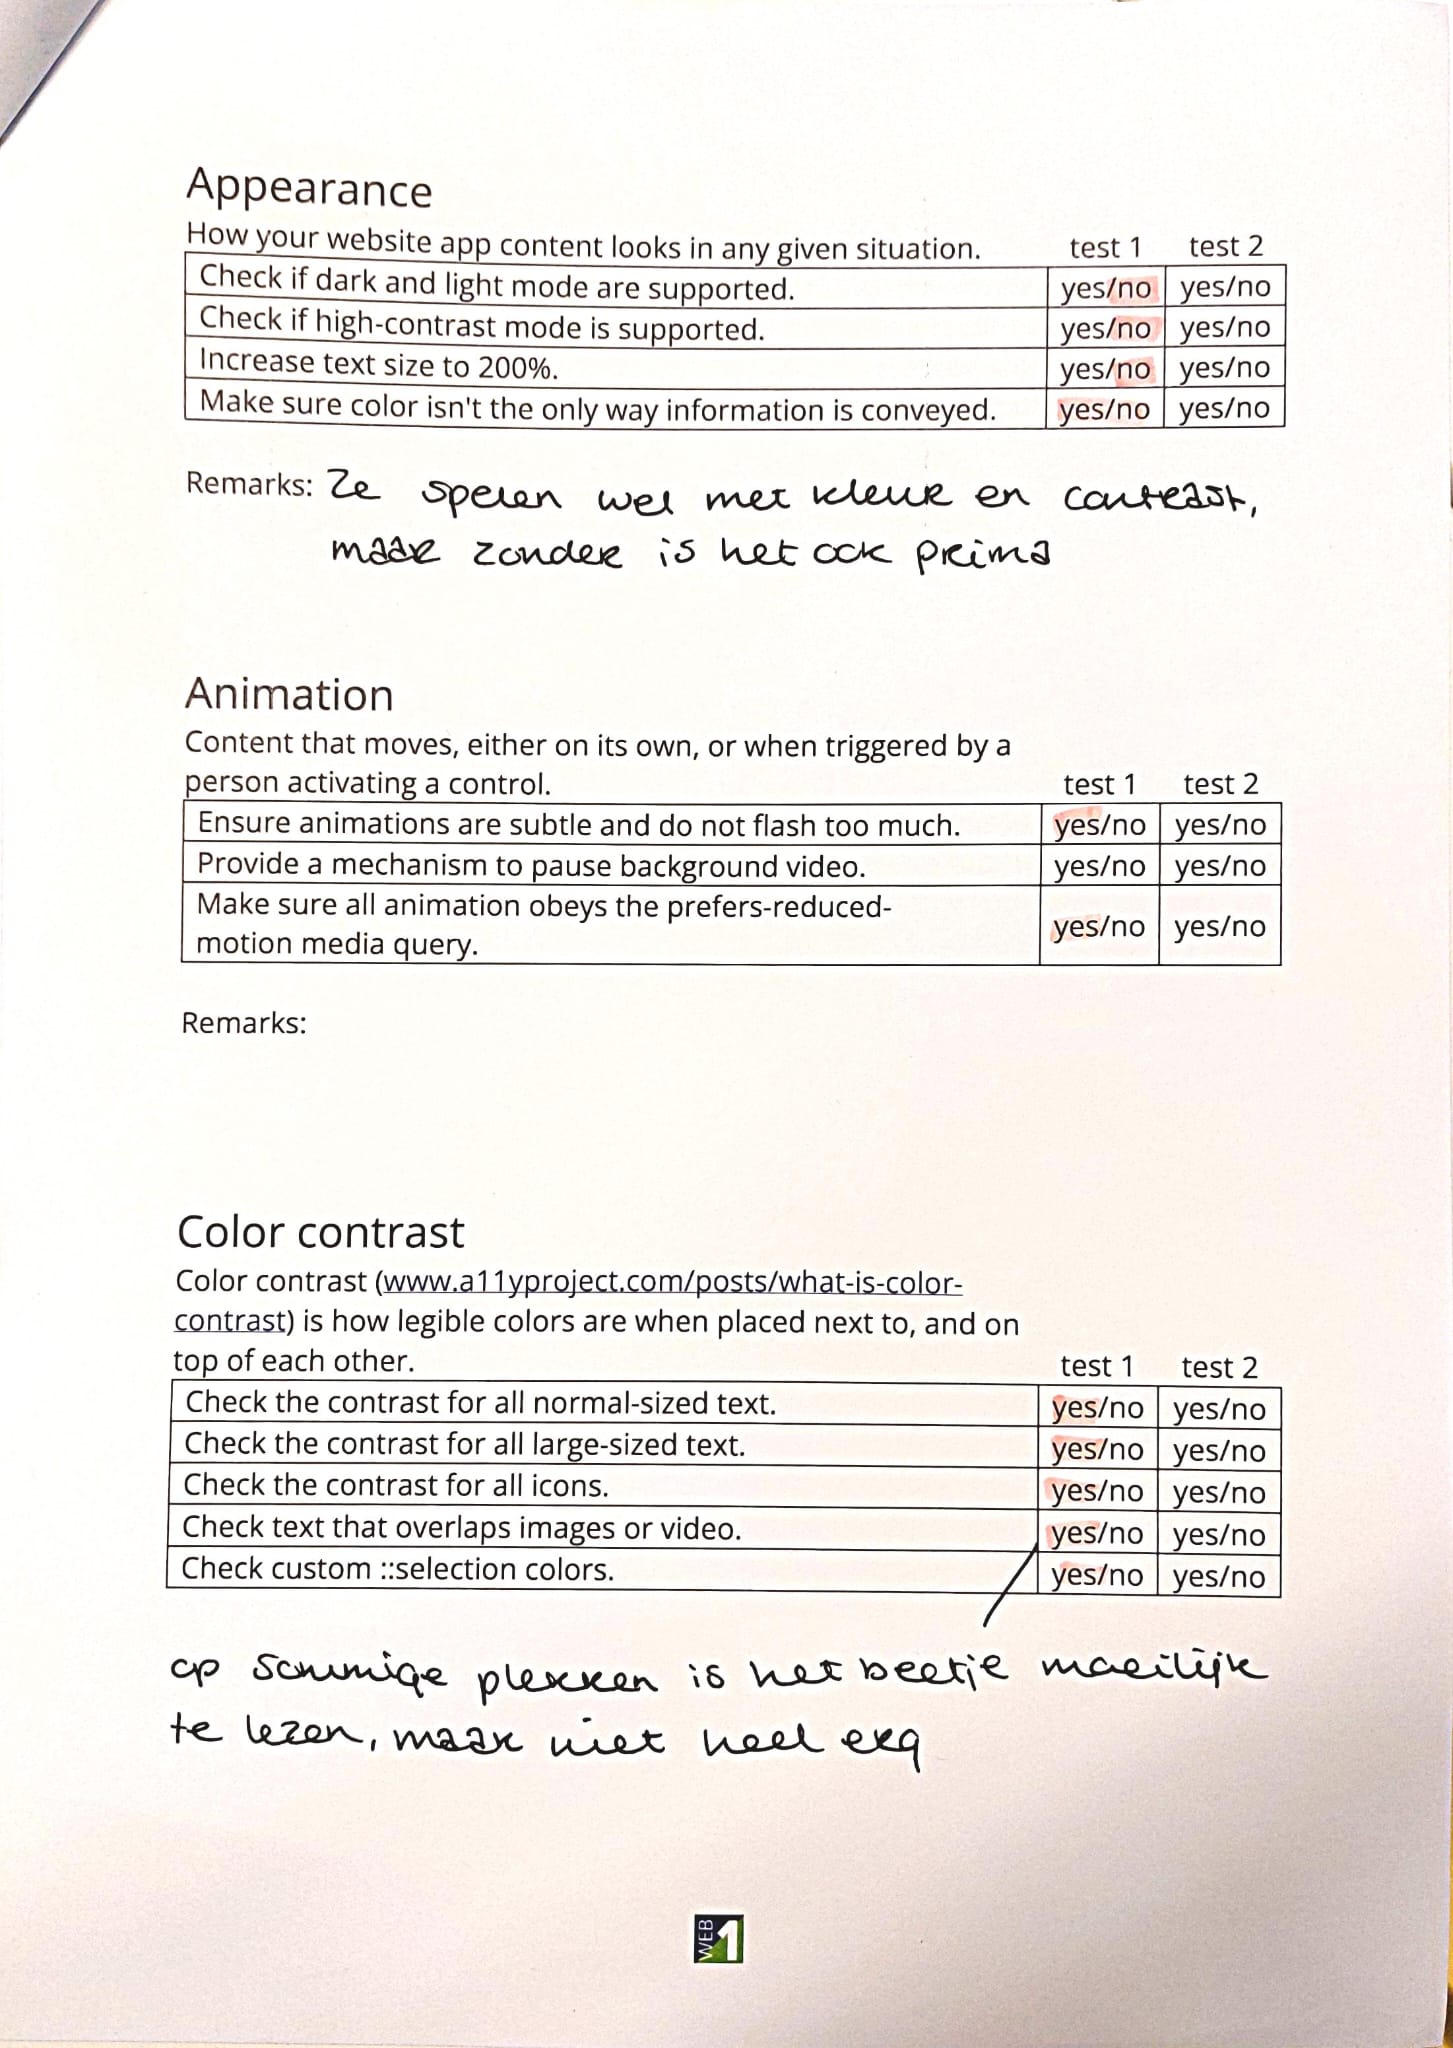 Appearance
How your website app content looks in any given situation. test 1 test 2
Check if dark and light mode are supported. yes/no yes/no
Check if high-contrast mode is supported. yes/no yes/no
Increase text size to 200%. yes/no yes/no
Make sure color isn't the only way information is conveyed. yes/no yes/no
Remarks: Ze spelen wel met kleur en contrast,
maar zonder is het ook prima
Animation
Content that moves, either on its own, or when triggered by a
person activating a control. test 1 test 2
Ensure animations are subtle and do not flash too much. yes/no yes/no
Provide a mechanism to pause background video. yes/no yes/no
Make sure all animation obeys the prefers-reduced-
motion media query. yes/no yes/no
Remarks:
Color contrast
Color contrast (www.a11yproject.com/posts/what-is-color-
contrast) is how legible colors are when placed next to, and on
top of each other. test 1 test 2
Check the contrast for all normal-sized text. yes/no yes/no
Check the contrast for all large-sized text. yes/no yes/no
Check the contrast for all icons. yes/no yes/no
Check text that overlaps images or video. yes/no yes/no
Check custom ::selection colors. yes/no yes/no
op sommige plekken is het beetje moeilijk
te lezen, maar niet heel erg
WEB 1